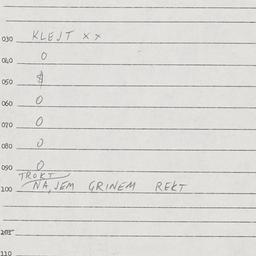 030 KLEJT xx
040 0
050 $
060 0
070 0
080 0
090 0
TROKT
100 NA, SEM GRINEM REKT
105
110